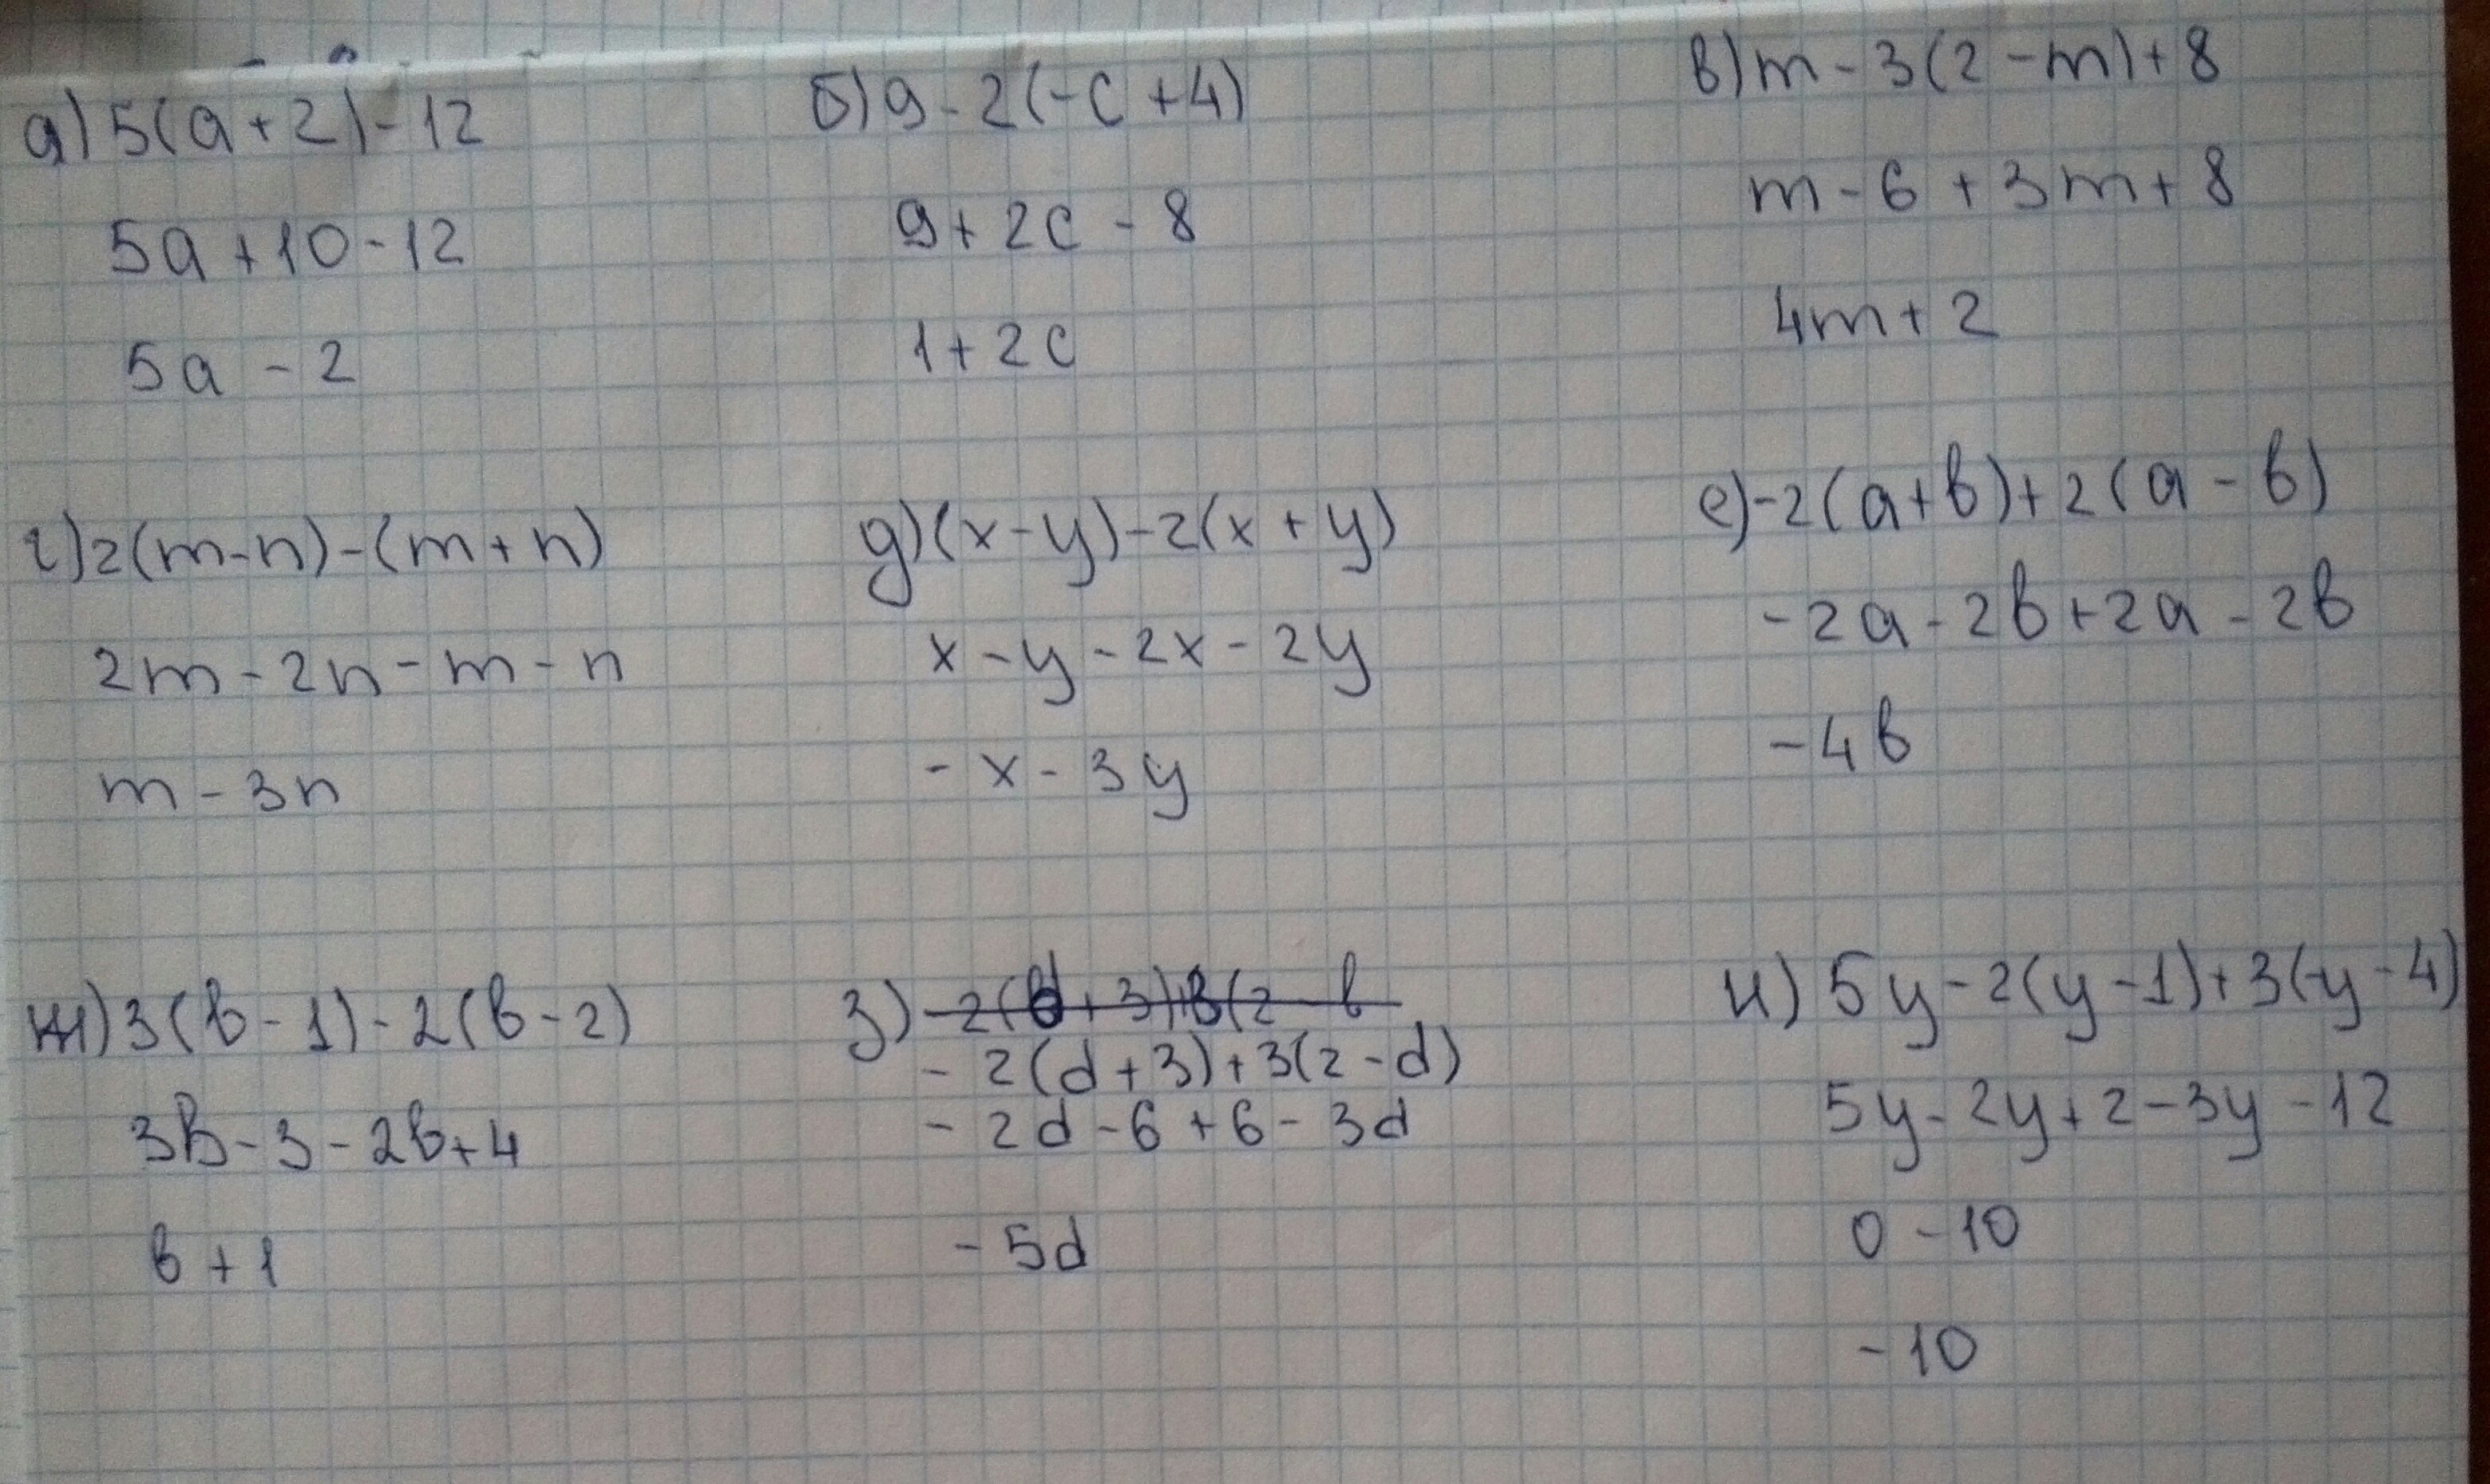 а) 5(a+2)-12
5a+10-12
5a - 2
б) 9-2(-c+4)
9+2c-8
1+2c
в) m-3(2-m)+8
m-6+3m+8
4m+2
г) 2(m-n)-(m+n)
2m-2n-m-n
m-3n
д) (x-y)-2(x+y)
x-y-2x-2y
-x-3y
е) -2(a+b)+2(a-b)
-2a-2b+2a-2b
-4b
ж) 3(b-1)-2(b-2)
3b-3-2b+4
b+1
з)
-2(d+3)+3(2-d)
-2d-6+6-3d
-5d
и) 5y-2(y-1)+3(-y-4)
5y-2y+2-3y-12
0-10
-10